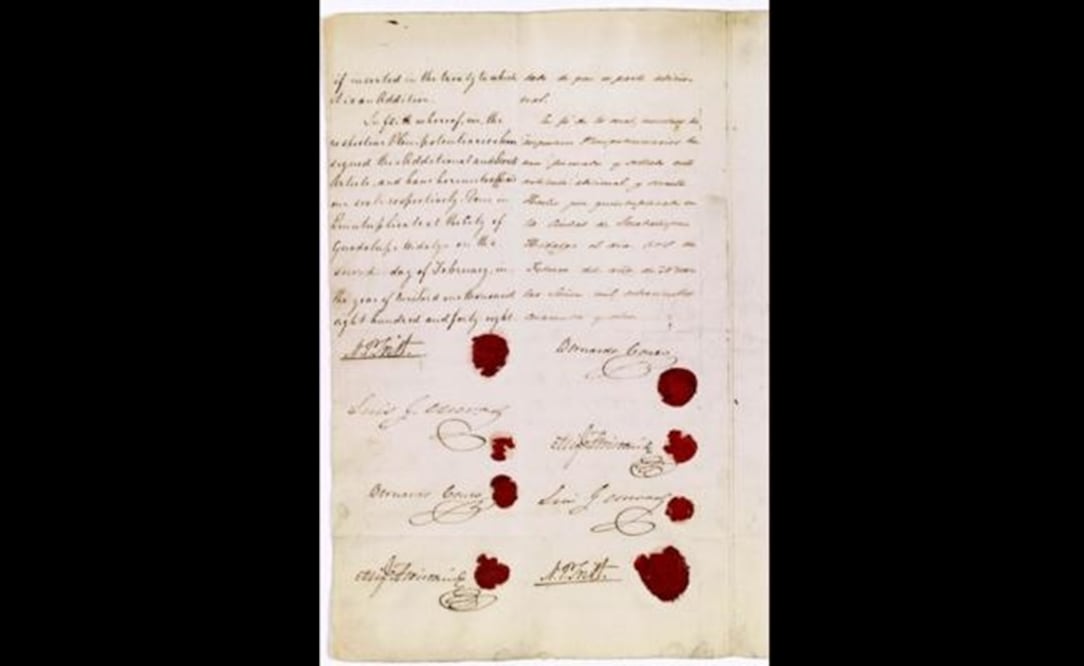 if inserted in the treaty to which
it is an Addition.
In faith whereof, we, the
respective Plenipotentiaries have
signed this Additional and Secret
Article, and have hereunto affixed
our seals respectively. Done in
Quintuplicate at the City of
Guadalupe Hidalgo on the
second day of February, in
the year of our Lord one thousand
eight hundred and forty eight.
N. P. Trist.
Luis G. Cuevas
Bernardo Couto
Mig. Atristain
dado de por
nal.
En fé de lo cual, nosotros los
Plenipotenciarios
firmado y sellado este
articulo adicional y secreto
Hecho por quintuplicado en
la Ciudad de Guadalupe
Hidalgo el dia dos de
Febrero del año de
mil ochocientos
cuarenta y ocho.
Bernardo Couto
Mig. Atristain
Luis G. Cuevas
N. P. Trist.